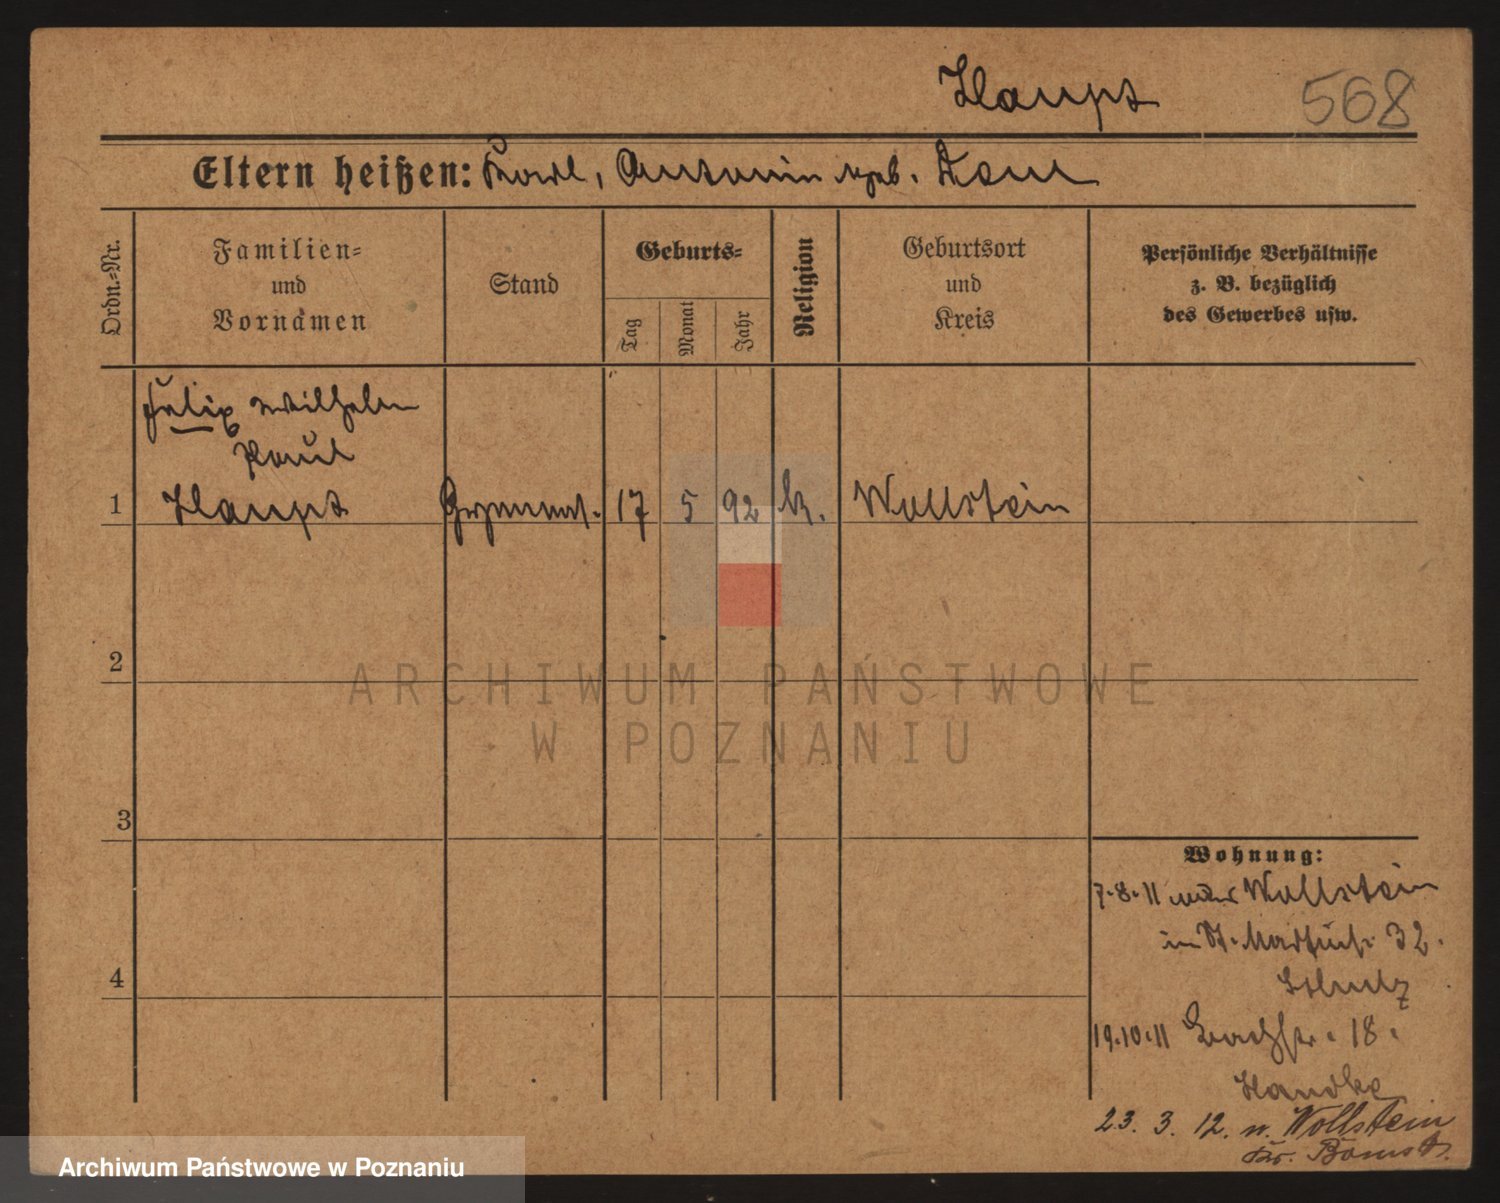 Haupt 568
Eltern heißen: Karl, Antonin geb.
Ordn.-Nr.
Familien-
und
Vornamen
Stand
Geburts-
Tag
Monat
Jahr
Religion
Geburtsort
und
Kreis
Persönliche Verhältnisse
z. B. bezüglich
des Gewerbes usw.
Felix Wilhelm
Paul
1 Haupt Gymnas. 17 5 92 k. Wollstein
2
3
4
Wohnung:
7.8.11 Wollstein
in St. Martinst. 32.
19.10.11 Bachstr. 18.
Handke
23. 3. 12. n. Wollstein
Kr. Bomst.
ARCHIWUM PAŃSTWOWE
W POZNANIU
Archiwum Państwowe w Poznaniu